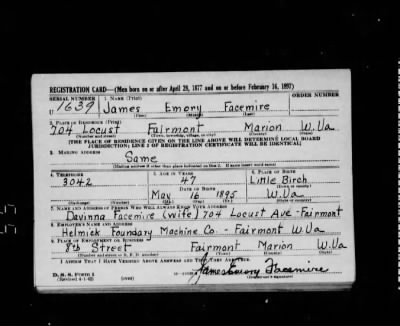 REGISTRATION CARD—(Men born on or after April 28, 1877 and on or before February 16, 1897)
SERIAL NUMBER 1. NAME (Print) ORDER NUMBER
U 1639 James Emory Facemire
(First) (Middle) (Last)
2. PLACE OF RESIDENCE (Print)
704 Locust Fairmont Marion W.Va
(Number and street) (Town, township, village, or city) (County) (State)
[THE PLACE OF RESIDENCE GIVEN ON THE LINE ABOVE WILL DETERMINE LOCAL BOARD
JURISDICTION; LINE 2 OF REGISTRATION CERTIFICATE WILL BE IDENTICAL]
3. MAILING ADDRESS
Same
[Mailing address if other than place indicated on line 2. If same insert word same]
4. TELEPHONE 5. AGE IN YEARS 6. PLACE OF BIRTH
3042 47 Little Birch
DATE OF BIRTH (Town or county)
May 16 1895 W.Va
(Exchange) (Number) (Mo.) (Day) (Yr.) (State or country)
7. NAME AND ADDRESS OF PERSON WHO WILL ALWAYS KNOW YOUR ADDRESS
Davinna Facemire (wife) 704 Locust Ave - Fairmont
8. EMPLOYER'S NAME AND ADDRESS
Helmick Foundary Machine Co. - Fairmont W.Va
9. PLACE OF EMPLOYMENT OR BUSINESS
8th Street Fairmont Marion W.Va
(Number and street or R. F. D. number) (Town) (County) (State)
I AFFIRM THAT I HAVE VERIFIED ABOVE ANSWERS AND THAT THEY ARE TRUE.
D. S. S. Form 1
(Revised 4-1-42) (over) James Emory Facemire